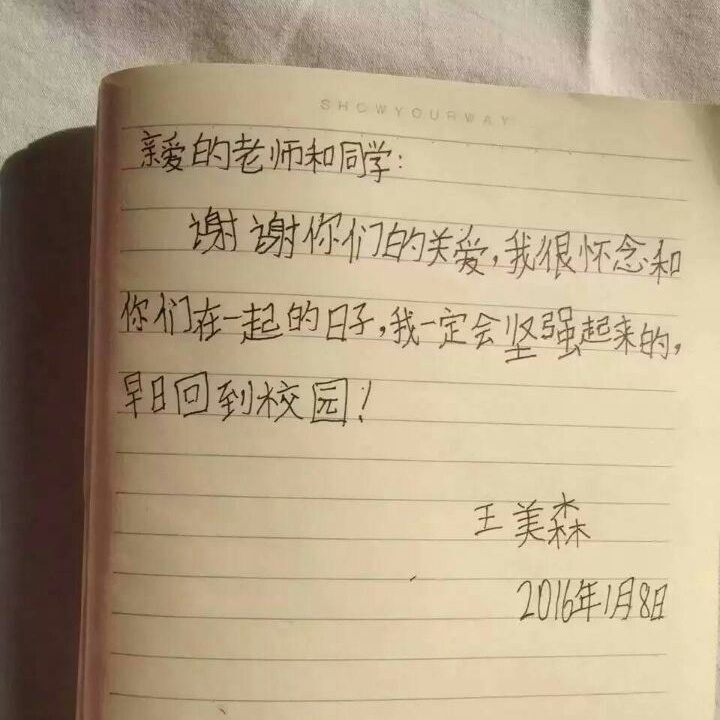 SHOWYOURWAY
亲爱的老师和同学：
谢谢你们的关爱，我很怀念和
你们在一起的日子，我一定会坚强起来的，
早日回到校园！
王美森
2016年1月8日